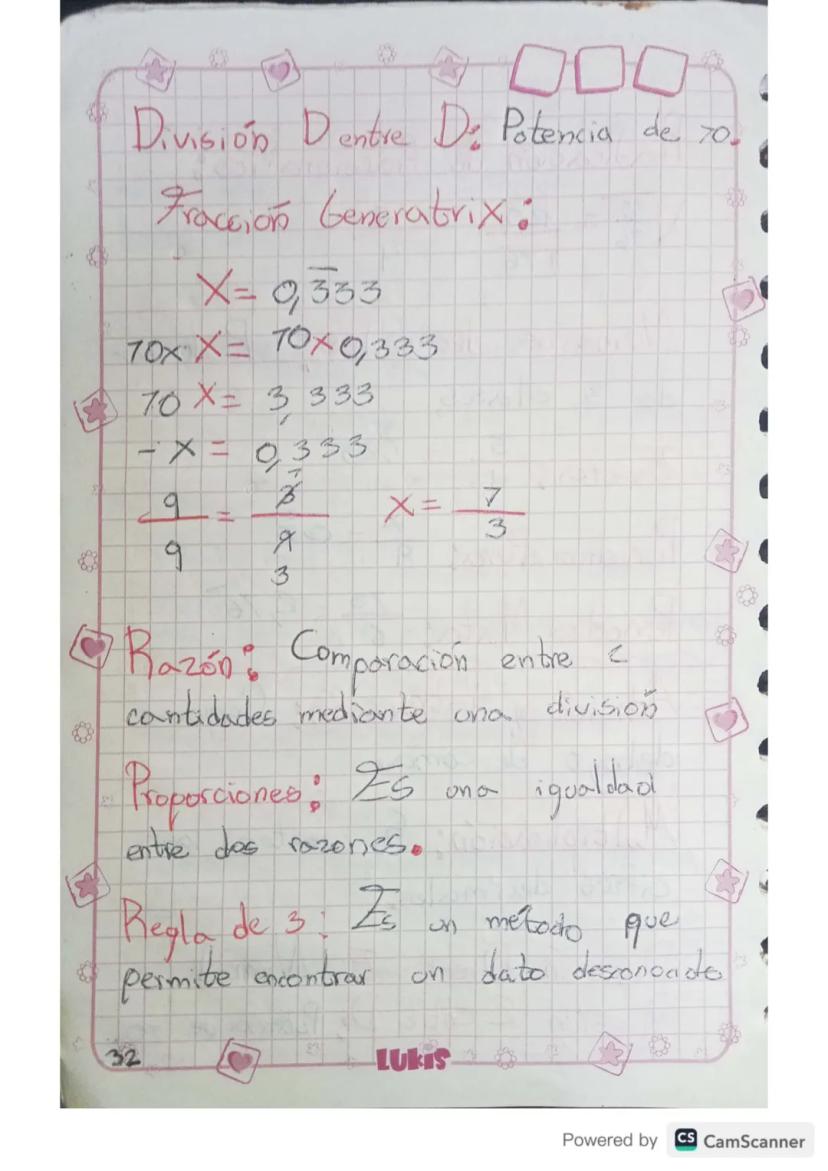 División D entre D: Potencia de 10.
Fracción Generatrix:
X = 0,3̅33
10x X = 10x0,333
10 X = 3,333
- X = 0,333
9/9 = 3/9 1 3 X = 1/3
Razón: Comparación entre 2
cantidades mediante una división
Proporciones: Es una igualdad
entre dos razones.
Regla de 3: Es un método que
permite encontrar un dato desconocido
32
LUKIS
Powered by CS CamScanner